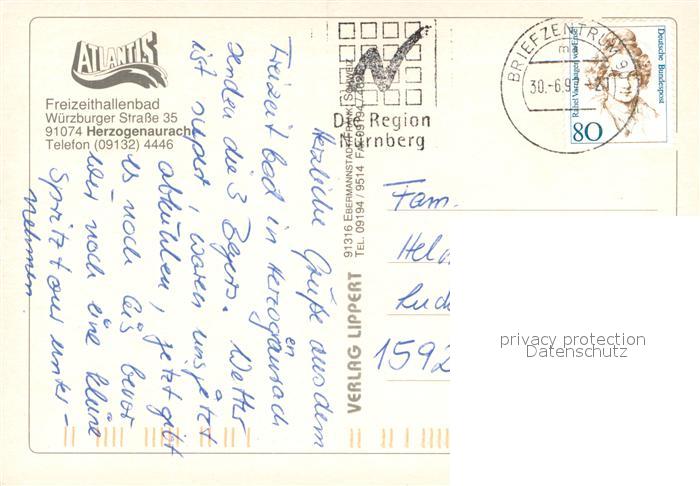 ATLANTIS
Freizeithallenbad
Würzburger Straße 35
91074 Herzogenaurach
Telefon (09132) 4446
Herzliche Grüße aus dem
Freizeitbad in Herzogenaurach
senden die 3 Beyers. Wetter
ist super, waren uns jetzt
abkühlen, jetzt gibt
es noch Eis bevor
wir noch eine kleine
Spritztour unter-
nehmen.
VERLAG LIPPERT
91316 EBERMANNSTADT/FRÄNK. SCHWEIZ
TEL. 09194 / 9514 FAX 09194
Die Region
Nürnberg
BRIEFZENTRUM 9
30.-6.9
80
Deutsche Bundespost
Rahel Varnhagen von Ense
Fam.
Hel
Lud
1592
privacy protection
Datenschutz